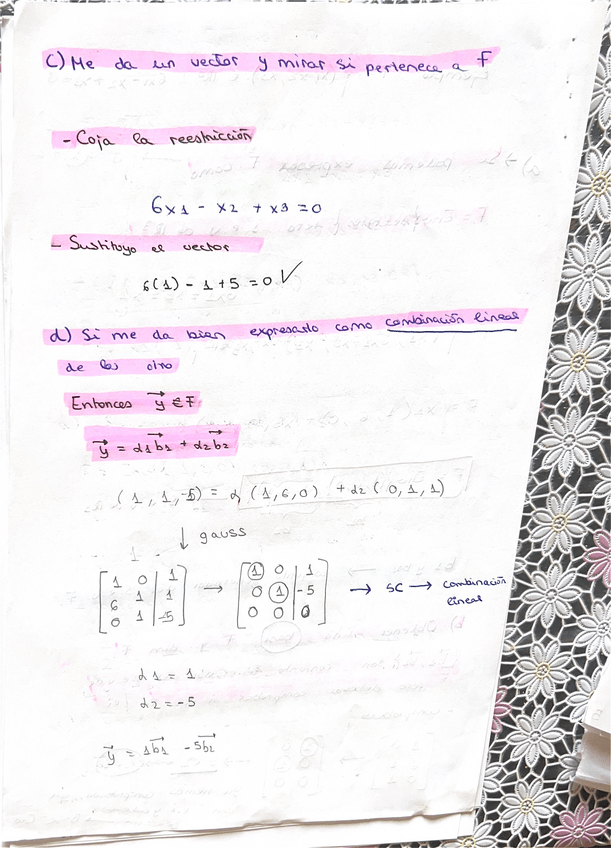 c) Me da un vector y mirar si pertenece a F
- Coja la reestricción
6x1 - x2 + x3 = 0
- Sustituyo el vector
6(1) - 1 + 5 = 0 ✓
d) Si me da bien expresarlo como combinación lineal
de los otro
Entonces y⃗ ∈ F
y⃗ = α1b1⃗ + α2b2⃗
(1, 1, -5) = α, (1, 6, 0) + α2 (0, 1, 1)
↓ gauss
[1 0 | 1 → [1 0 | 1
6 1 | 1 0 1 | -5 → SC → combinación
0 1 | -5] 0 0 | 0] lineal
α1 = 1
α2 = -5
y⃗ = 1b1⃗ - 5b2⃗